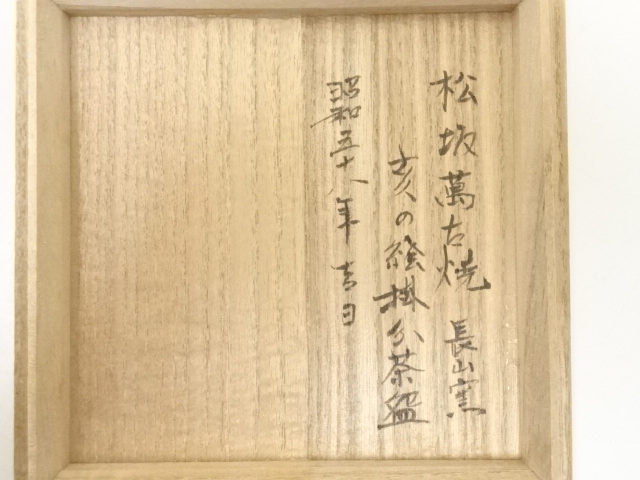 松坂萬古焼 長山窯
亥の絵掛分茶盌
昭和五十八年 吉日